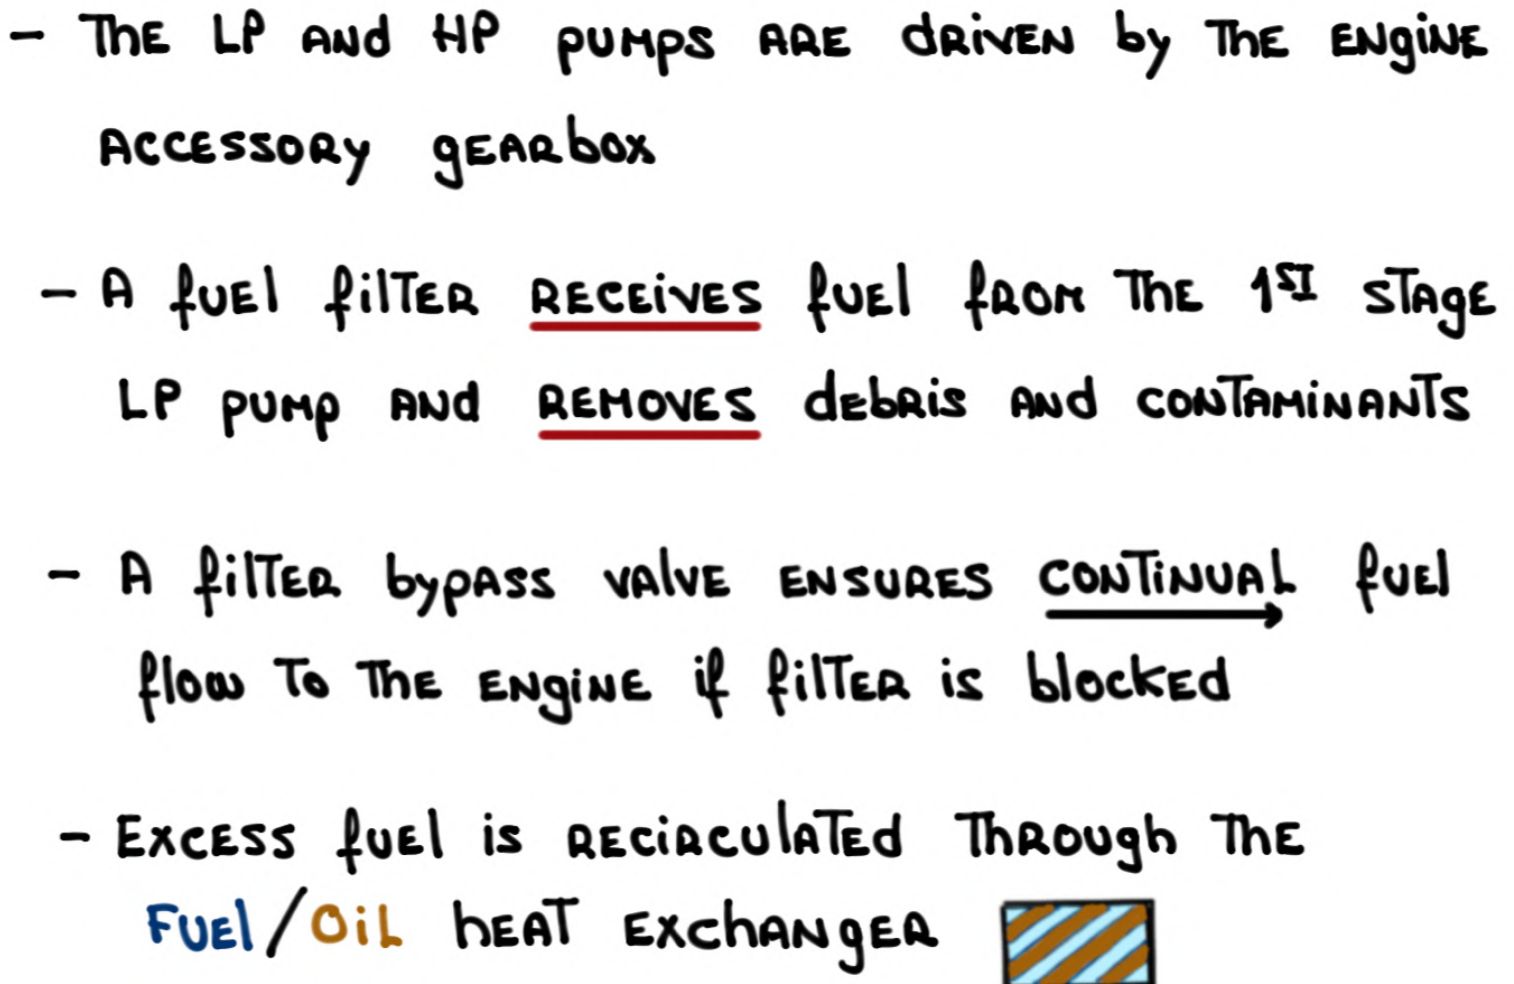 - THE LP AND HP PUMPS ARE dRiVEN by THE ENgiNE
ACCESSORY gEARbox
- A fuEl filTER RECEiVES fuEl fROM THE 1ST STAgE
LP PUMP AND REMOVES dEbRiS AND CONTAMiNANTS
- A filTER bypASS VAlVE ENSURES CONTiNUAL fuEl
flow TO THE ENgiNE if filTER is blockEd
- EXCESS fuEl is RECiRCulATEd THROUgh THE
FuEl/OiL hEAT EXchANgER